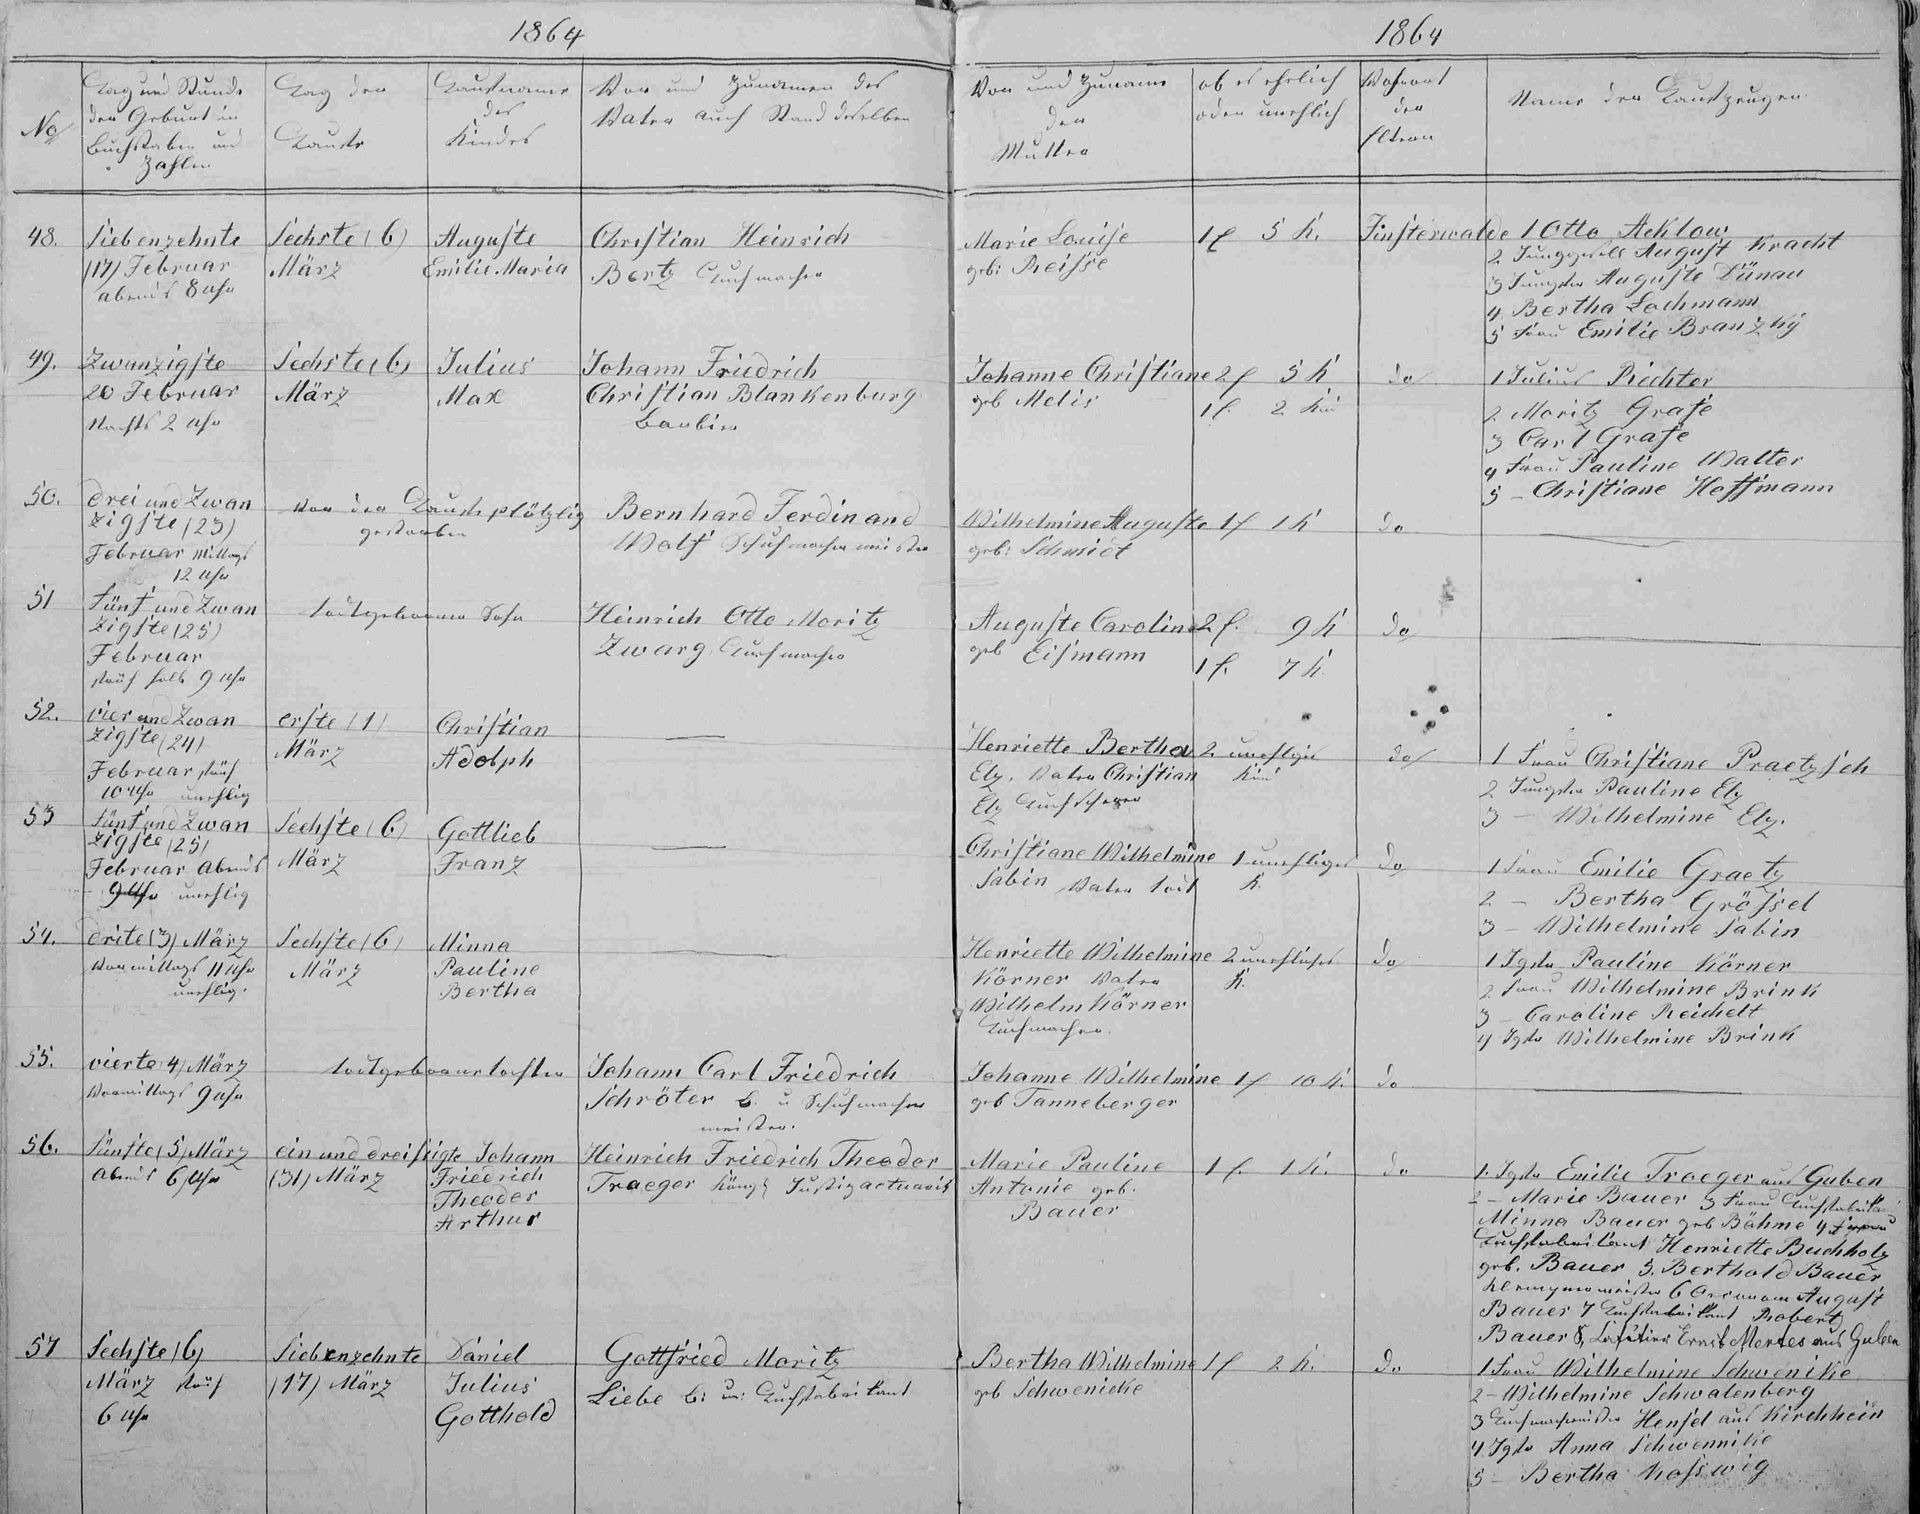 1864
1864
No
Tag und Stunde
der Geburt in
Buchstaben und
Zahlen
Tag der
Taufe
Taufname
des
Kindes
Vor und Zunamen des
Vaters auch Stand desselben
Vor und Zuname
der
Mutter
ob es ehelich
oder unehlich
Wohnort
der
Eltern
Name der Taufzeugen
48.
Siebenzehnte
(17) Februar
abends 8 Uhr
Sechste (6)
März
Auguste
Emilie Maria
Christian Heinrich
Bertz Tuchmacher
Marie Louise
geb: Reisse
1 E 5 K.
Finsterwalde
1 Otto Acklow
2 Junggesell August Kracht
3 Jungfer Auguste Dünau
4 Bertha Lochmann
5 Frau Emilie Branzky
49.
Zwanzigste
20 Februar
Nachts 2 Uhr
Sechste (6)
März
Julius
Max
Johann Friedrich
Christian Blankenburg
Johanne Christiane
geb Melis
2 E 5 K
1 E. 2 Kin
do
1 Julius Richter
2 Moritz Grafe
3 Carl Grafe
4 Frau Pauline Walter
5 - Christiane Hoffmann
50.
drei und Zwan
zigste (23)
Februar Mittags
12 Uhr
Vor der Taufe plötzlig
gestorben
Bernhard Ferdinand
Wolf Schuhmachermeister
Wilhelmine Auguste
geb: Schmidt
1 E 1 K
do
51
Fünf und Zwan
zigste (25)
Februar
früh halb 9 Uhr
todtgeborner Sohn
Heinrich Otto Moritz
Zwarg Tuchmacher
Auguste Caroline
geb Eismann
2 E. 9 K
1 E. 7 K.
do
52.
vier und Zwan
zigste (24)
Februar früh
10 Uhr unehlig
erste (1)
März
Christian
Adolph
Henriette Bertha
Elz. Vater Christian
Elz Tuchscherer
2 unehlige
Kind
do
1 Frau Christiane Praetzsch
2 Jungfer Pauline Elz
3 - Wilhelmine Elz.
53
Fünf und Zwan
zigste (25)
Februar Abends
9 Uhr unehlig
Sechste (6)
März
Gottlieb
Franz
Christiane Wilhelmine
Sabin Vater todt
1 unehliges
K.
do
1 Frau Emilie Graetz
2 - Bertha Grössel
3 - Wilhelmine Sabin
54.
drite (3) März
Vormittags 11 Uhr
unehlig.
Sechste (6)
März
Minna
Pauline
Bertha
Henriette Wilhelmine
Körner Vater
Wilhelm Körner
Tuchmacher.
2 unehliches
K.
do
1 Jgfr Pauline Körner
2 Frau Wilhelmine Brink
3 - Caroline Reichelt
4 Jgfr Wilhelmine Brink
55.
vierte 4) März
Vormittags 9 Uhr
todtgeborne tochter
Johann Carl Friedrich
Schröter B. u Schuhmacher
meister.
Johanne Wilhelmine
geb Tanneberger
1 E 10 K.
do
56.
Fünfte (5) März
Abends 6 Uhr
ein und dreißigte
(31) März
Johann
Friedrich
Theodor
Arthur
Heinrich Friedrich Theodor
Traeger Königl Justizactuaris
Marie Pauline
Antonie geb.
Bauer
1 E. 1 K.
do
1. Jgfr Emilie Traeger aus Guben
2 - Marie Bauer 3 Frau Tuchfabrikant
Minna Bauer geb Böhme 4 Frau
Tuchfabrikant Henriette Buchholz
geb. Bauer 5. Berthold Bauer
Klempnermeister 6 Oeconom August
Bauer 7 Tuchfabrikant Robert
Bauer 8, Ernst Mertes aus Guben
57
Sechste (6)
März früh
6 Uhr
Siebenzehnte
(17) März
Daniel
Julius
Gotthold
Gottfried Moritz
Liebe B: u: Tuchfabrikant
Bertha Wilhelmine
geb Schwenicke
1 E 2 K.
do
1 Frau Wilhelmine Schwenike
2 - Wilhelmine Schwalenberg
3 Tuchmachermeister Hensel aus Kirchhein
4. Jgfr Anna Schwennike
5 - Bertha Kosswig